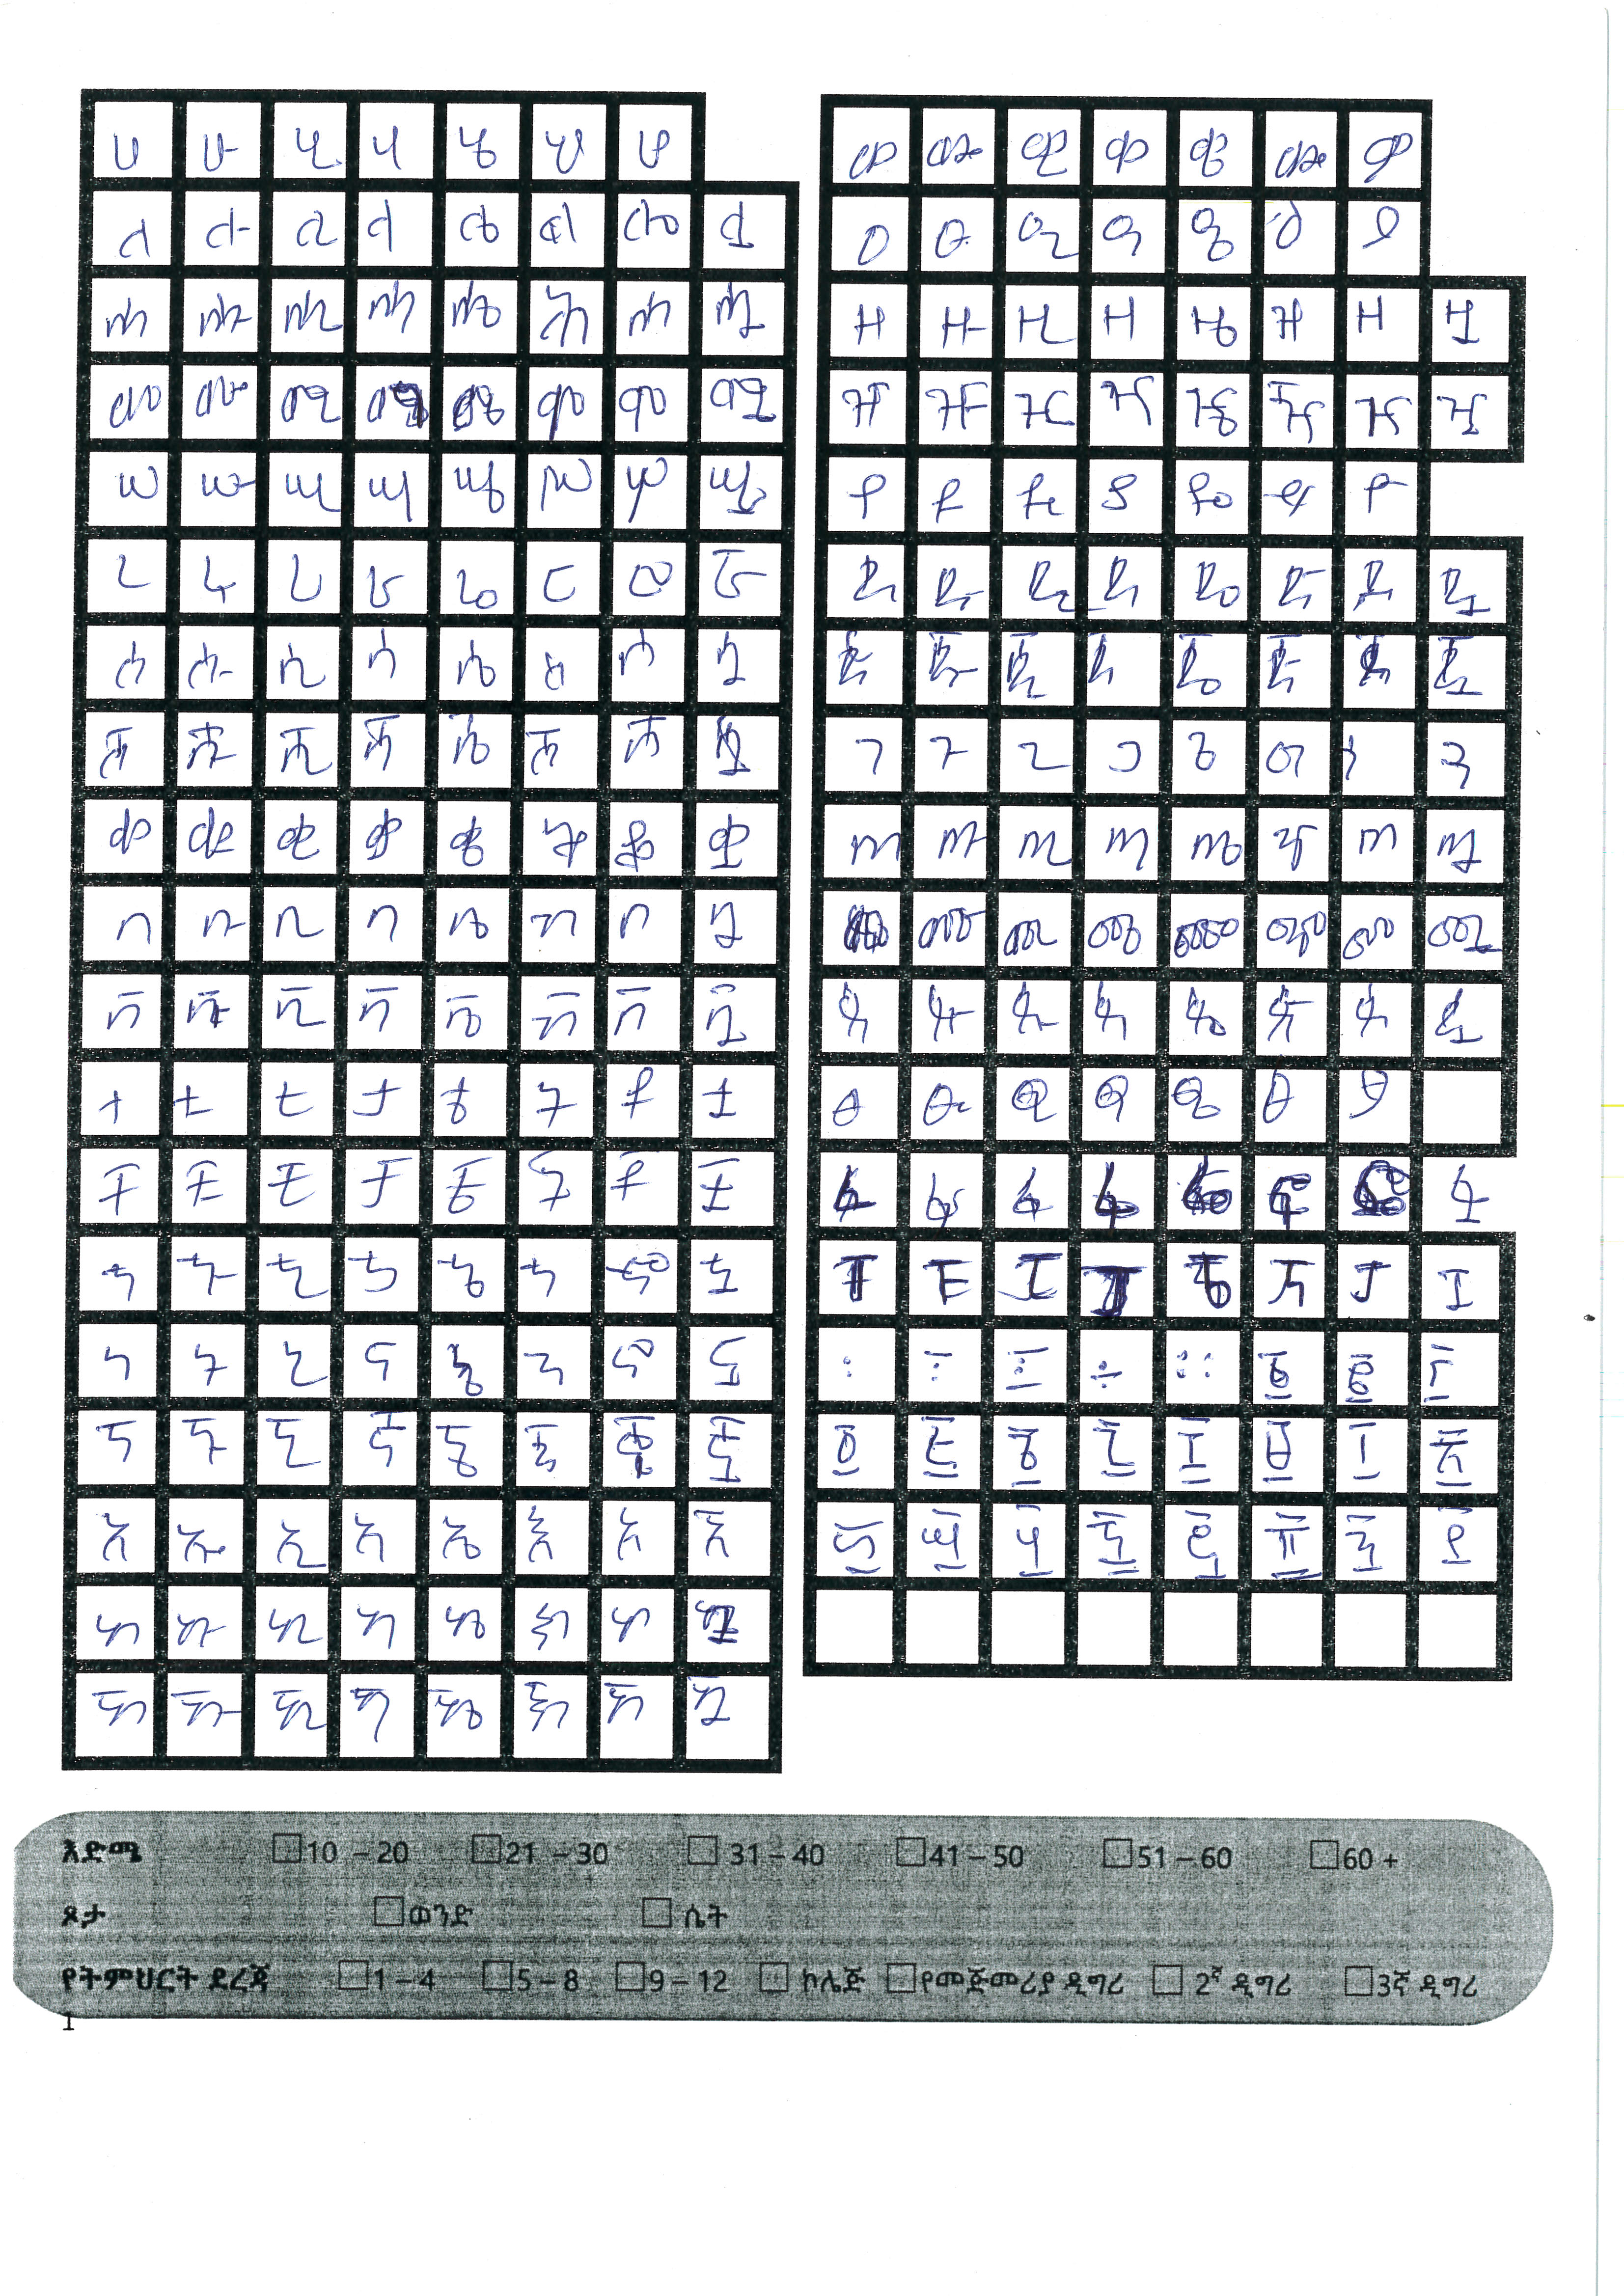 ሀ ሁ ሂ ሃ ሄ ህ ሆ
ለ ሉ ሊ ላ ሌ ል ሎ ሏ
ሐ ሑ ሒ ሓ ሔ ሕ ሖ ሗ
መ ሙ ሚ ማ ሜ ም ሞ ሟ
ሠ ሡ ሢ ሣ ሤ ሥ ሦ ሧ
ረ ሩ ሪ ራ ሬ ር ሮ ሯ
ሰ ሱ ሲ ሳ ሴ ስ ሶ ሷ
ሸ ሹ ሺ ሻ ሼ ሽ ሾ ሿ
ቀ ቁ ቂ ቃ ቄ ቅ ቆ ቋ
በ ቡ ቢ ባ ቤ ብ ቦ ቧ
ቨ ቩ ቪ ቫ ቬ ቭ ቮ ቯ
ተ ቱ ቲ ታ ቴ ት ቶ ቷ
ቸ ቹ ቺ ቻ ቼ ች ቾ ቿ
ኀ ኁ ኂ ኃ ኄ ኅ ኆ ኋ
ነ ኑ ኒ ና ኔ ን ኖ ኗ
ኘ ኙ ኚ ኛ ኜ ኝ ኞ ኟ
አ ኡ ኢ ኣ ኤ እ ኦ ኧ
ከ ኩ ኪ ካ ኬ ክ ኮ ኳ
ኸ ኹ ኺ ኻ ኼ ኽ ኾ ዃ
ወ ዉ ዊ ዋ ዌ ው ዎ
ዐ ዑ ዒ ዓ ዔ ዕ ዖ
ዘ ዙ ዚ ዛ ዜ ዝ ዞ ዟ
ዠ ዡ ዢ ዣ ዤ ዥ ዦ ዧ
የ ዩ ዪ ያ ዬ ይ ዮ
ደ ዱ ዲ ዳ ዴ ድ ዶ ዷ
ጀ ጁ ጂ ጃ ጄ ጅ ጆ ጇ
ገ ጉ ጊ ጋ ጌ ግ ጎ ጓ
ጠ ጡ ጢ ጣ ጤ ጥ ጦ ጧ
ጨ ጩ ጪ ጫ ጬ ጭ ጮ ጯ
ጸ ጹ ጺ ጻ ጼ ጽ ጾ ጿ
ፀ ፁ ፂ ፃ ፄ ፅ ፆ
ፈ ፉ ፊ ፋ ፌ ፍ ፎ ፏ
ፐ ፑ ፒ ፓ ፔ ፕ ፖ ፗ
፡ ፣ ፤ ÷ ። ፩ ፪ ፫
፬ ፭ ፮ ፯ ፰ ፱ ፲ ፳
፴ ፵ ፶ ፷ ፸ ፹ ፺ ፻
እድሜ 10 – 20 21 – 30 31 – 40 41 – 50 51 – 60 60 +
ጾታ ወንድ ሴት
የትምህርት ደረጃ 1 – 4 5 – 8 9 – 12 ኮሌጅ የመጀመሪያ ዲግሪ 2ኛ ዲግሪ 3ኛ ዲግሪ
1